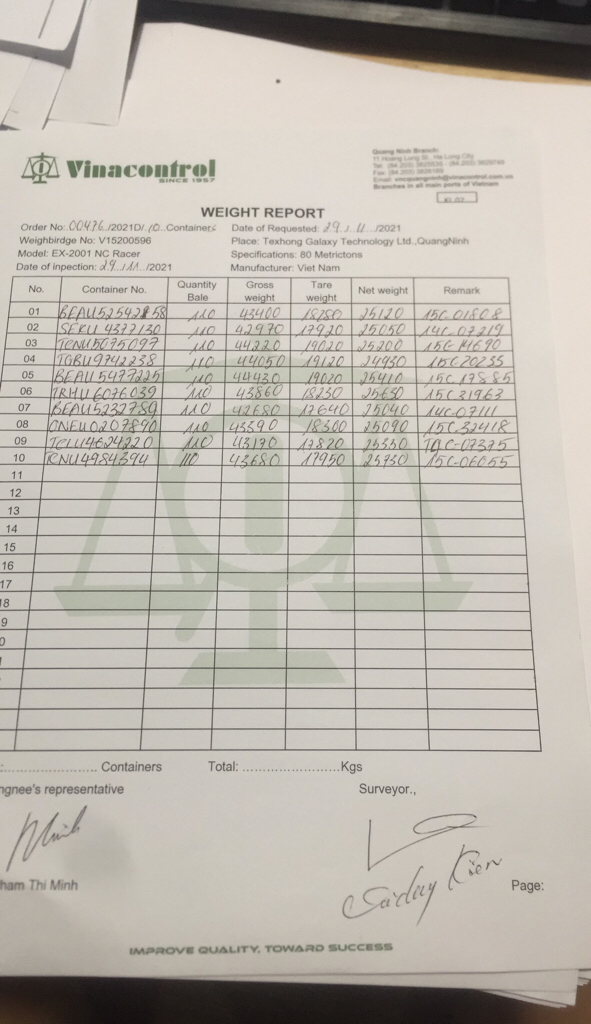 Vinacontrol
SINCE 1957
Quang Ninh Branch:
Branches in all main ports of Vietnam
WEIGHT REPORT
Order No: 00476/2021D/10 Containers
Date of Requested: 29/11/2021
Weighbirdge No: V15200596
Place: Texhong Galaxy Technology Ltd.,QuangNinh
Model: EX-2001 NC Racer
Specifications: 80 Metrictons
Date of inpection: 29/11/2021
Manufacturer: Viet Nam
No. Container No. Quantity Bale Gross weight Tare weight Net weight Remark
01 110 43400 18280 25120 15C-01808
02 SEKU 4377130 110 42970 17920 25050 14C-07219
03 110 44220 19020 25200
04 TGBU9742238 110 44050 19120 24930 15C-20235
05 BEAU5477225 110 44430 19020 25410 15C-17885
06 TRHU6076039 110 43860 18230 25630 15C-21963
07 BEAU5232789 110 42680 17640 25040 14C-07111
08 ONEU0207890 110 43390 18300 25090 15C-32418
09 TCLU4624220 110 43170 17820 25350
10 110 43680 17950 25730 15C-06655
11
12
13
14
15
16
17
18
Containers Total: Kgs
representative Surveyor.,
Thi Minh
Page:
IMPROVE QUALITY, TOWARD SUCCESS